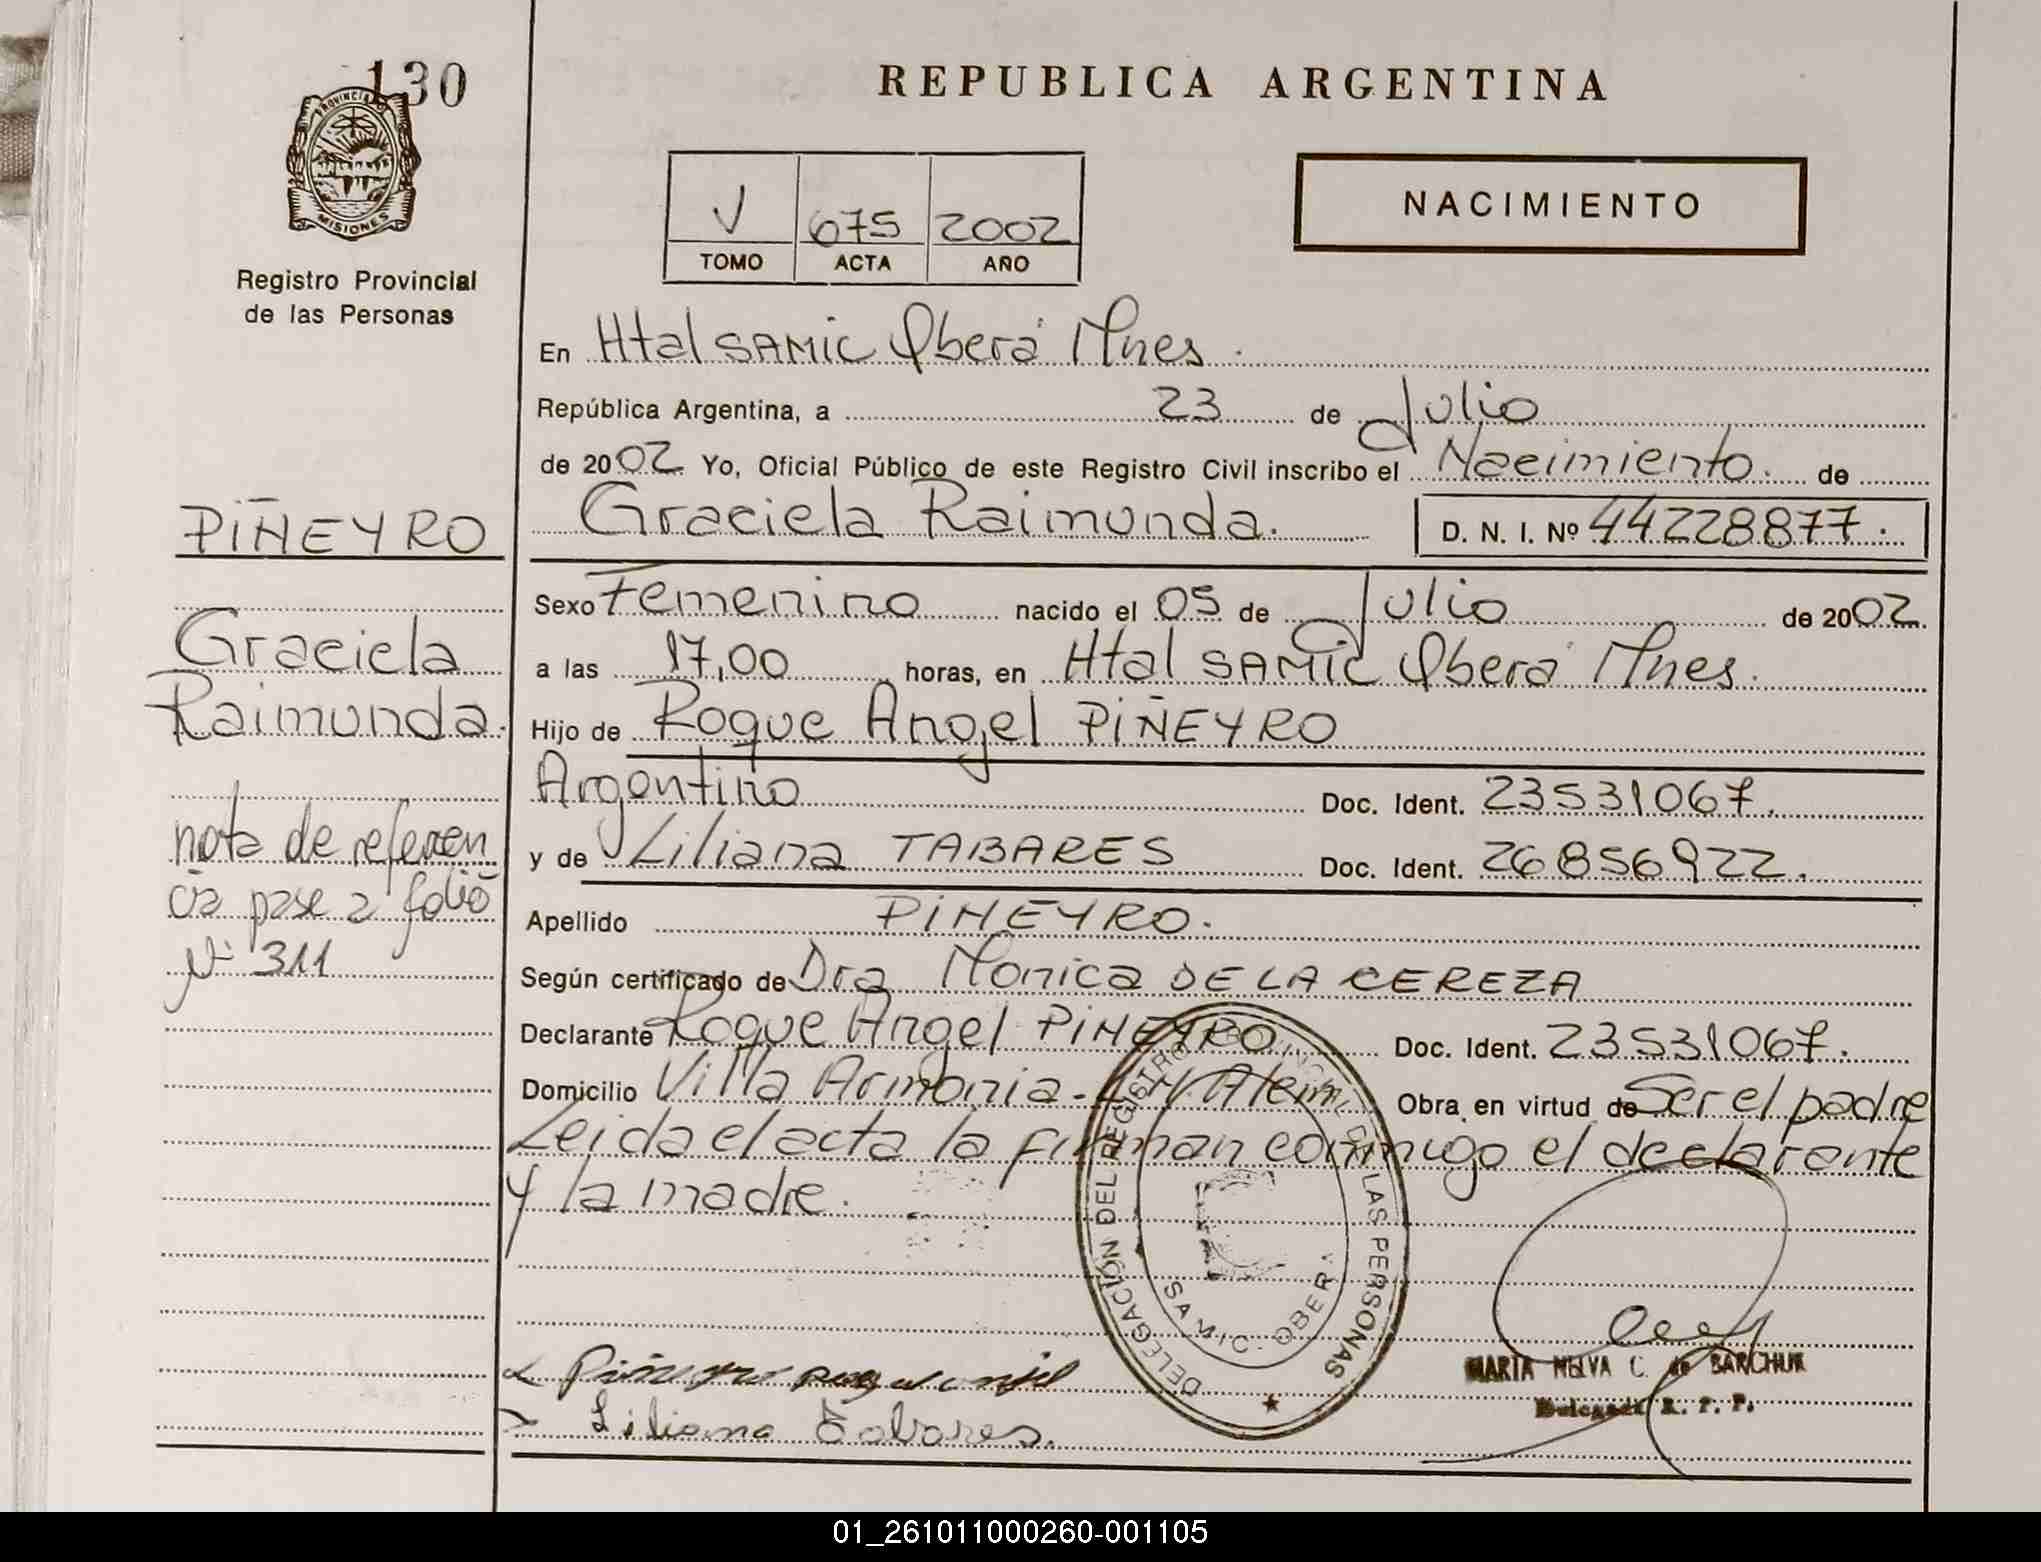 130
REPUBLICA ARGENTINA
PROVINCIA
MISIONES
Registro Provincial
de las Personas
V 675 2002
TOMO ACTA AÑO
NACIMIENTO
En Htal SAMIC Oberá Mnes.
República Argentina, a 23 de Julio
de 2002 Yo, Oficial Público de este Registro Civil inscribo el Nacimiento. de
Graciela Raimunda. D. N. I. Nº 44228877.
PIÑEYRO
Graciela
Raimunda.
nota de referen
cia pase a folio
Nº 311
Sexo Femenino nacido el 05 de Julio de 2002.
a las 17,00 horas, en Htal SAMIC Oberá Mnes.
Hijo de Roque Angel PIÑEYRO
Argentino Doc. Ident. 23531067.
y de Liliana TABARES Doc. Ident. 26856922.
Apellido PIÑEYRO.
Según certificado de Dra Monica DE LA CEREZA
Declarante Roque Angel PIÑEYRO Doc. Ident. 23531067.
Domicilio Villa Armonia - L N Alem Obra en virtud de Ser el padre
Leida el acta la firman conmigo el declarante
y la madre.
DELEGACIÓN DEL REGISTRO PROVINCIAL DE LAS PERSONAS
SAMIC. OBERA
Piñeyro
Liliana Tabares.
MARIA NELVA C. de BARCHUK
Delegada R. P. P.
01_261011000260-001105